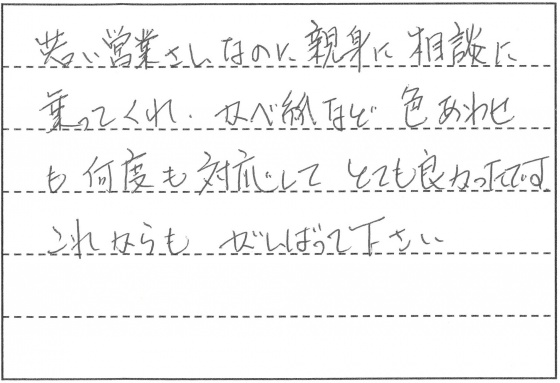 若い営業さんなのに親身に相談に
乗ってくれ、かべ紙など色あわせ
も何度も対応してとても良かったです
これからもがんばって下さい